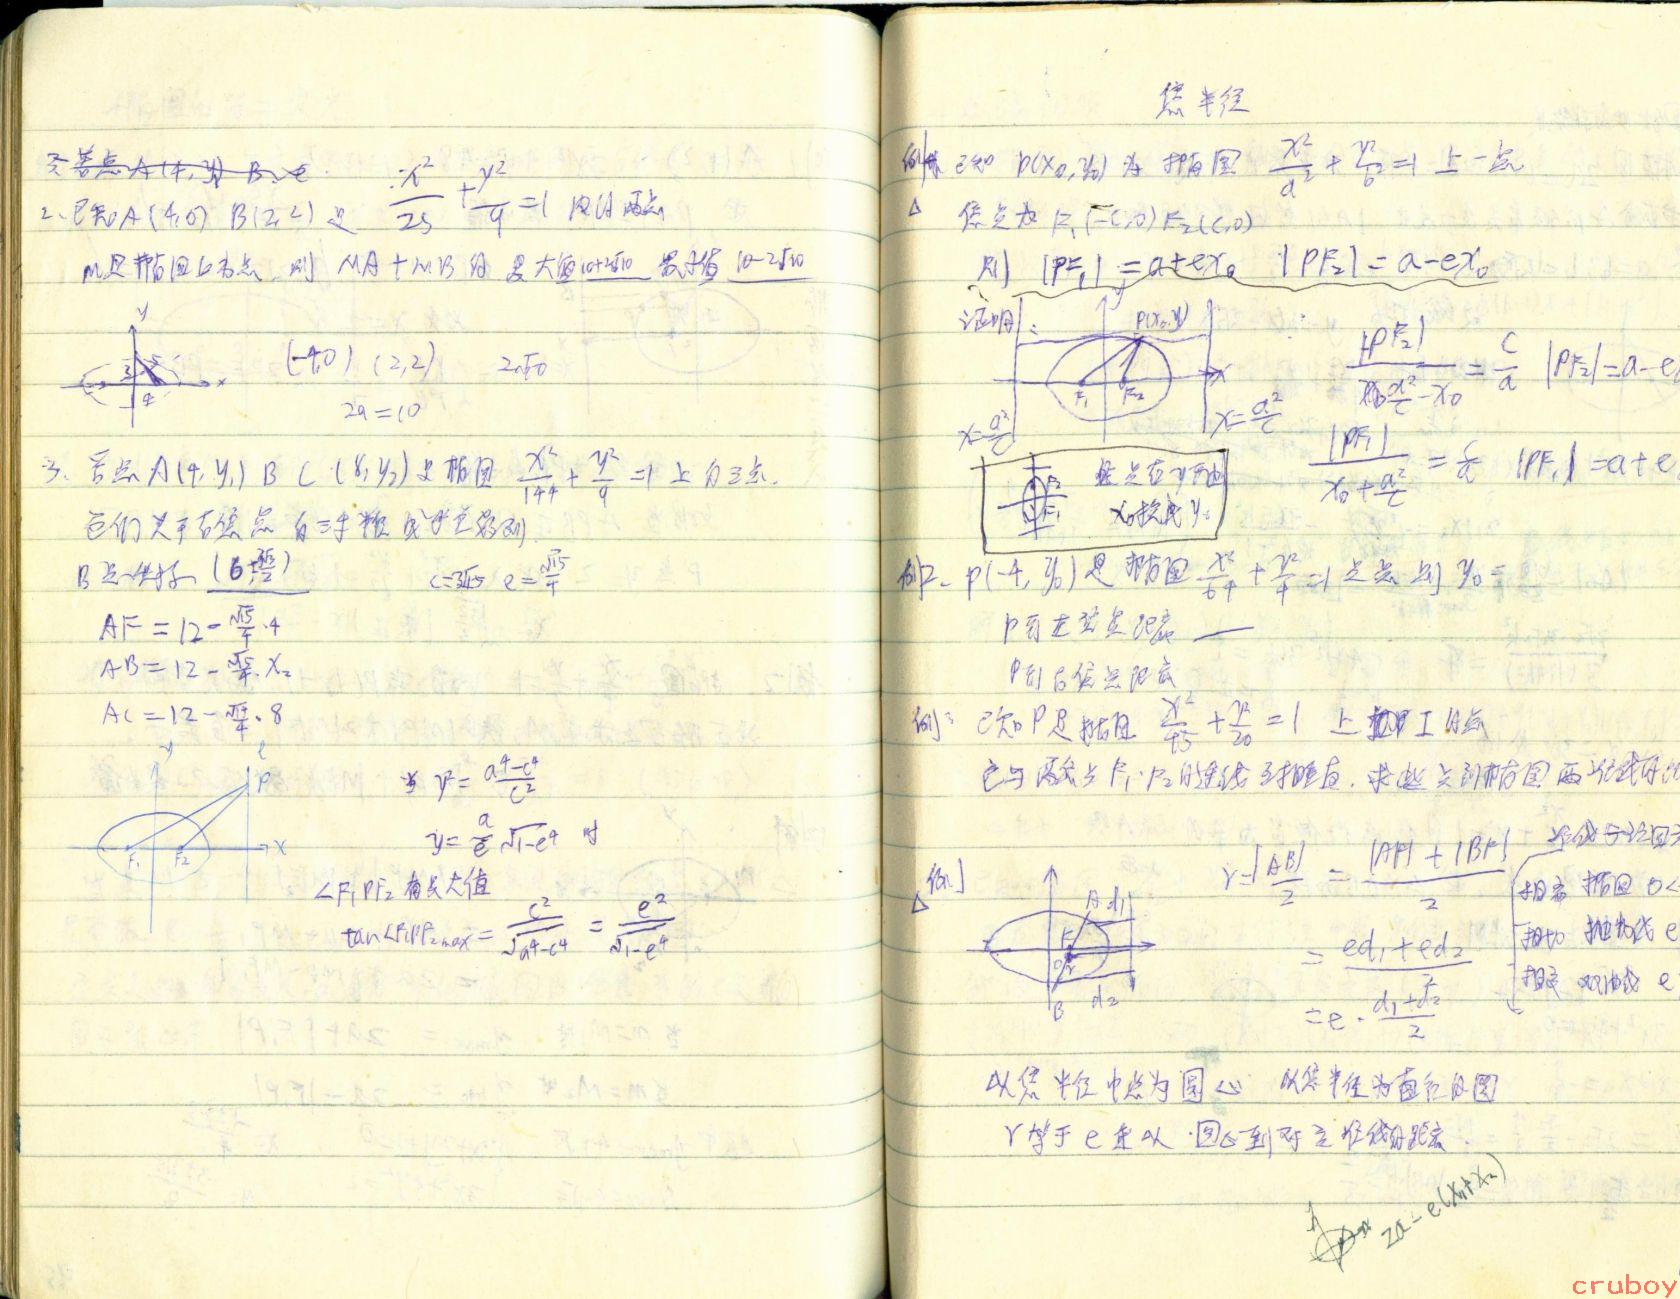 2、已知A(4,0) B(2,2)是 x²/25 + y²/9 = 1 内的两点
M是椭圆上动点,则 MA+MB的最大值 10+2√10 最小值 10-2√10
y
x
(-4,0) (2,2) 2√10
2a=10
3、若点A(4,y₁) B C(8,y₃)是椭圆 x²/144 + y²/9 = 1 上的三点.
它们关于右焦点的三半径成等差数列
B点坐标
c=3√15 e=√15/4
AF=12-√15/4·4
AB=12-√15/4·x₂
AC=12-√15/4·8
y l
P
F₁ F₂ x
当 y²= a⁴-c⁴/c²
y= a/e √1-e⁴ 时
∠F₁PF₂ 有最大值
tan∠F₁PF₂max = c²/√a⁴-c⁴ = e²/√1-e⁴
焦半径
已知 P(x₀,y₀) 为椭圆 x²/a² + y²/b² = 1 上一点
△ 焦点为 F₁(-c,0) F₂(c,0)
则 |PF₁| = a+ex₀ |PF₂| = a-ex₀
证明
y
P(x₀,y₀)
F₁ F₂ x
x=a²/c x=a²/c
|PF₂| / a²/c-x₀ = c/a |PF₂|=a-e
|PF₁| / x₀+a²/c = c/a |PF₁|=a+e
F₂
F₁
焦点在y轴
x₀换成y₀
例2、P(-4,y₀)是椭圆 x²/64 + y²/4 = 1 上点 则 y₀=
P到左焦点距离
P到右焦点距离
例3 已知P是椭圆 x²/45 + y²/20 = 1 上 的点
它与两焦点F₁、F₂的连线互相垂直.求此点到椭圆两准线
△例
A d₁
F
B d₂
r=|AB|/2 = |AF|+|BF| / 2
= ed₁+ed₂ / 2
=e·d₁+d₂ / 2
准线与该圆
相离 椭圆 0<
相切 抛物线 e
相交 双曲线 e
以焦半径中点为圆心 以焦半径为直径的圆
r等于e乘以 圆心到对应准线的距离.
2a-e(x₁+x₂)
cruboy